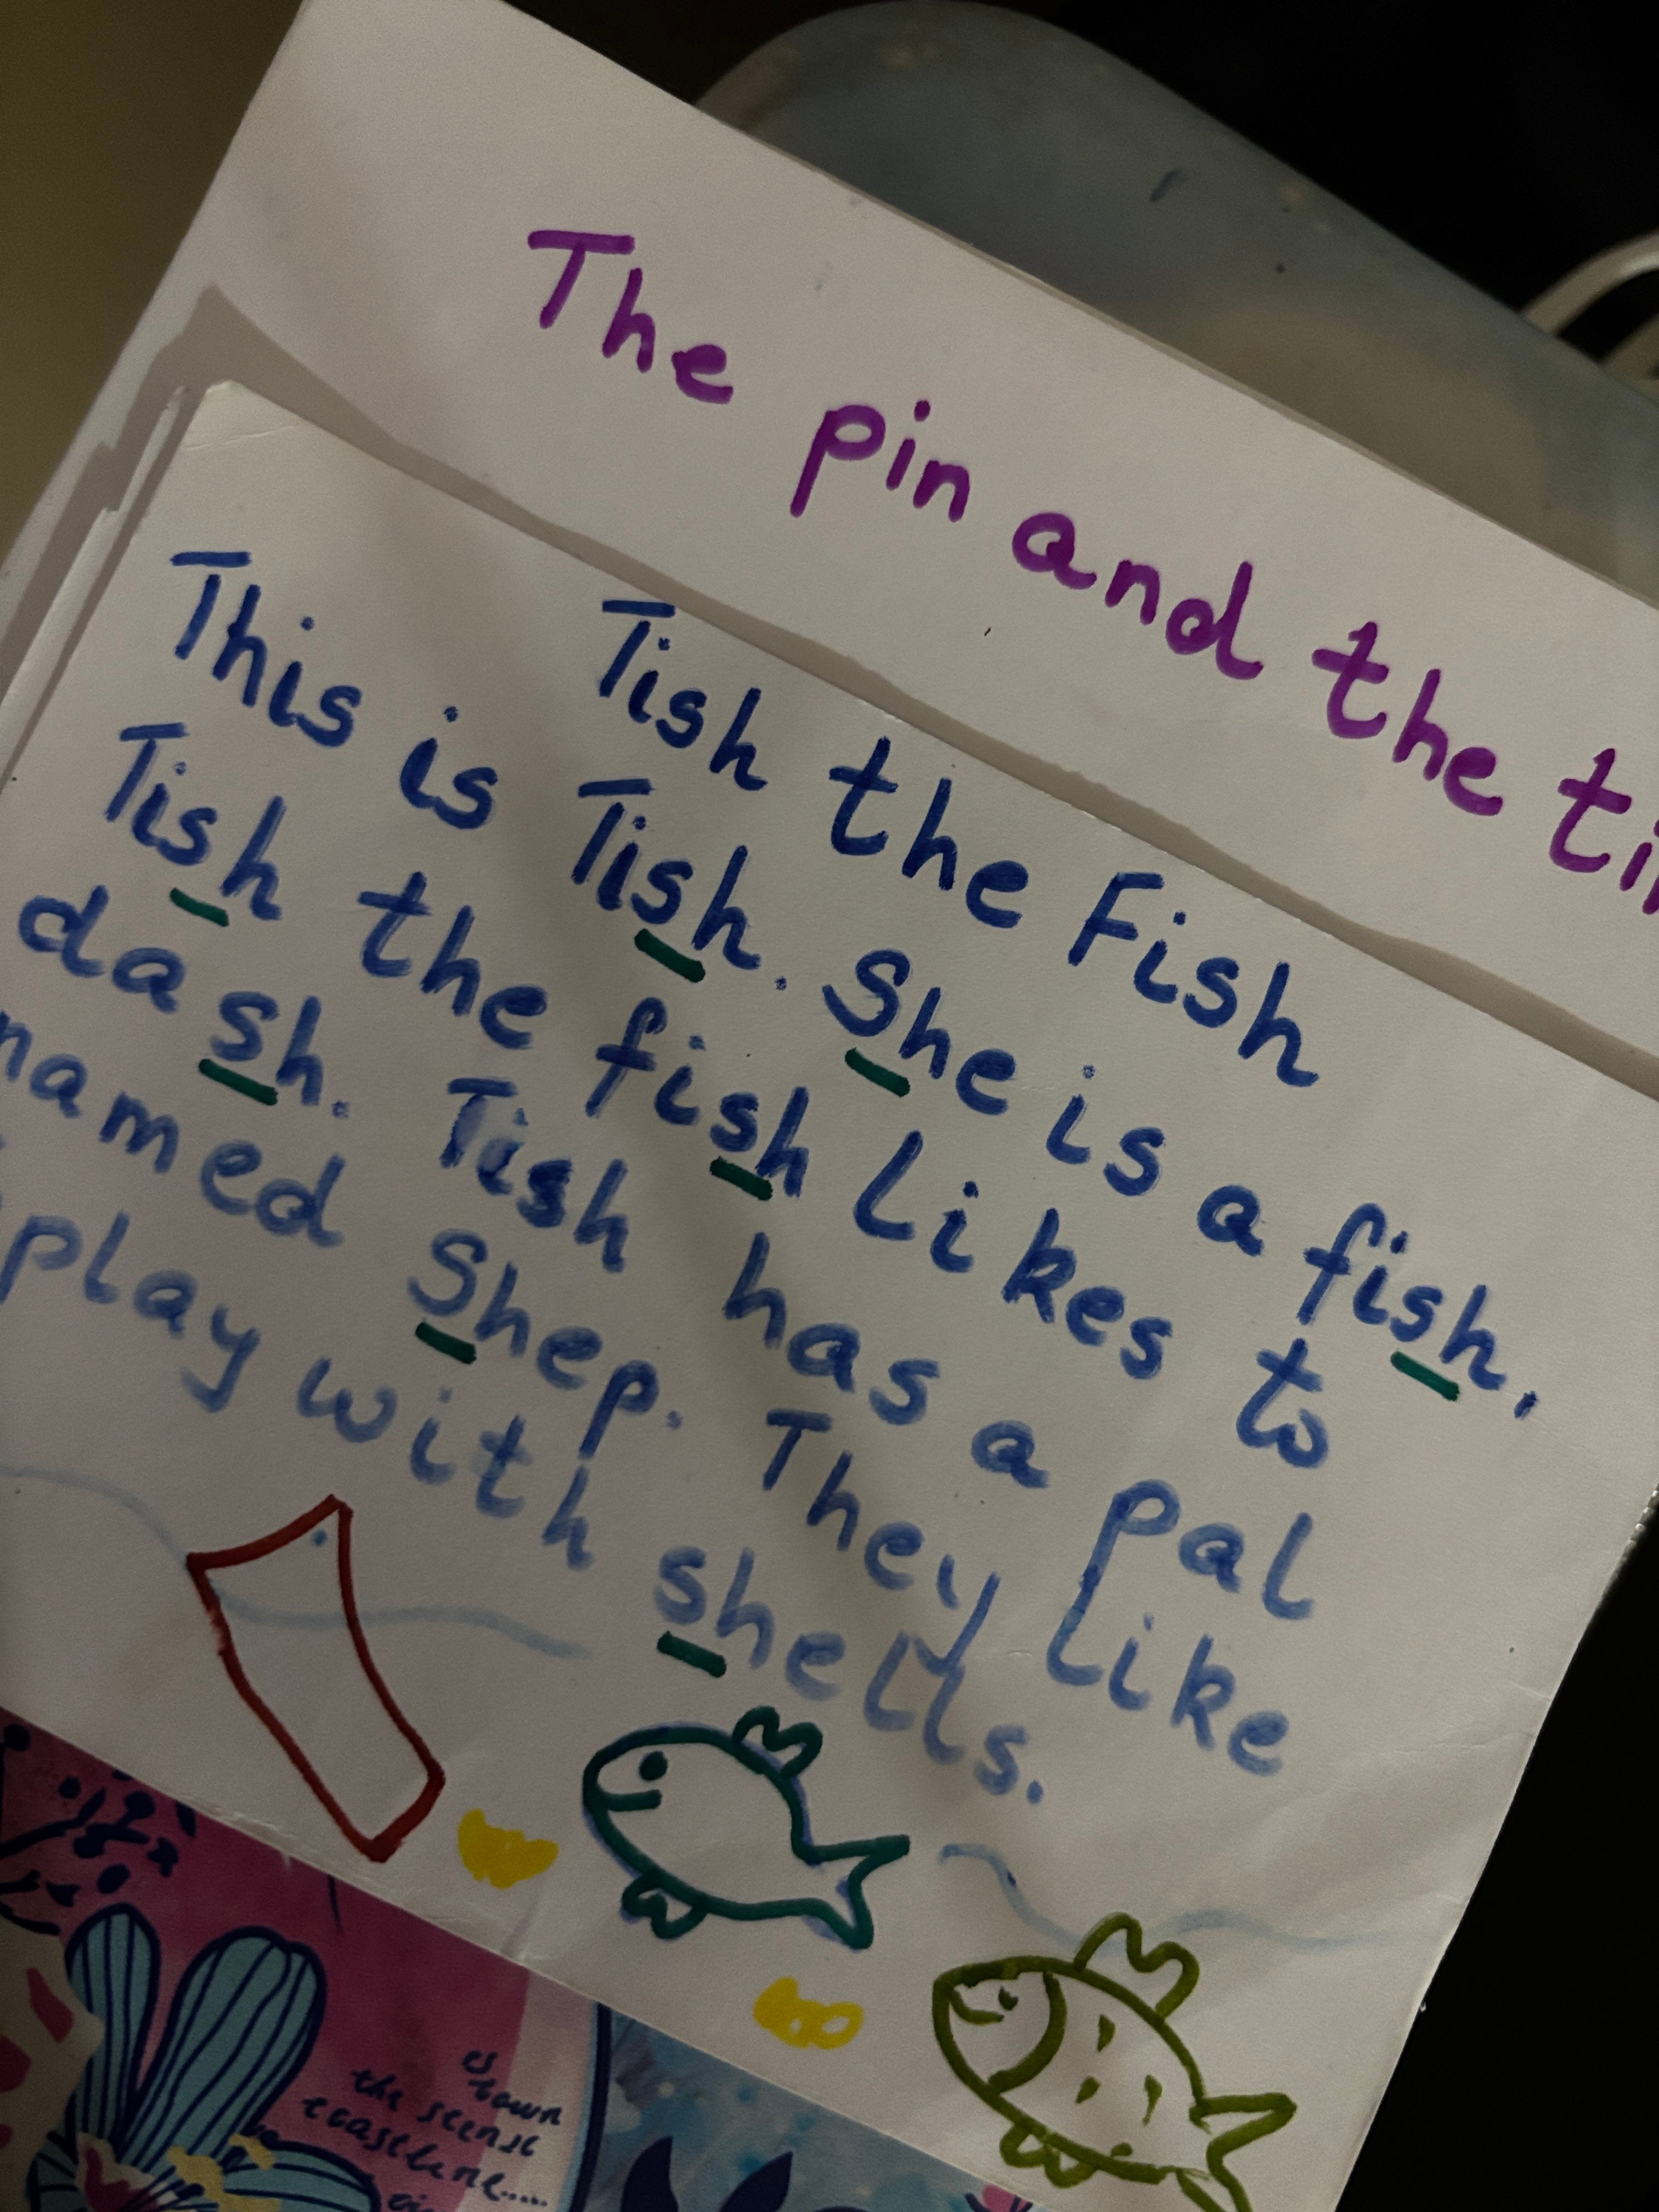 The pin and the
Tish the Fish
This is Tish. She is a fish.
Tish the fish likes to
dash. Tish has a pal
named Shep. They like
play with shells.
es town
the scense
coastline.....